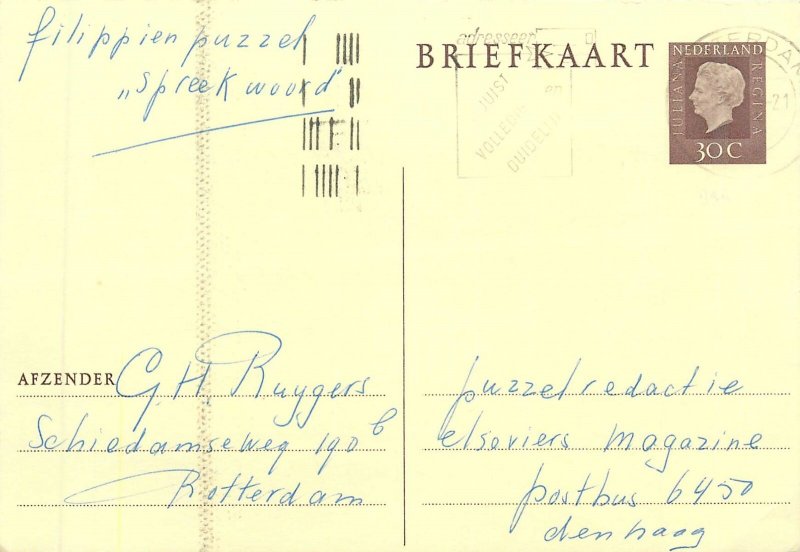 filippien puzzel
„Spreekwoord"
adresseer
JUIST
VOLLEDIG
en
DUIDELIJK
BRIEFKAART
NEDERLAND
JULIANA
REGINA
30 C
AFZENDER G. H. Ruygers
Schiedamseweg 190 b
Rotterdam
puzzelredactie
elseviers magazine
postbus 6450
den haag